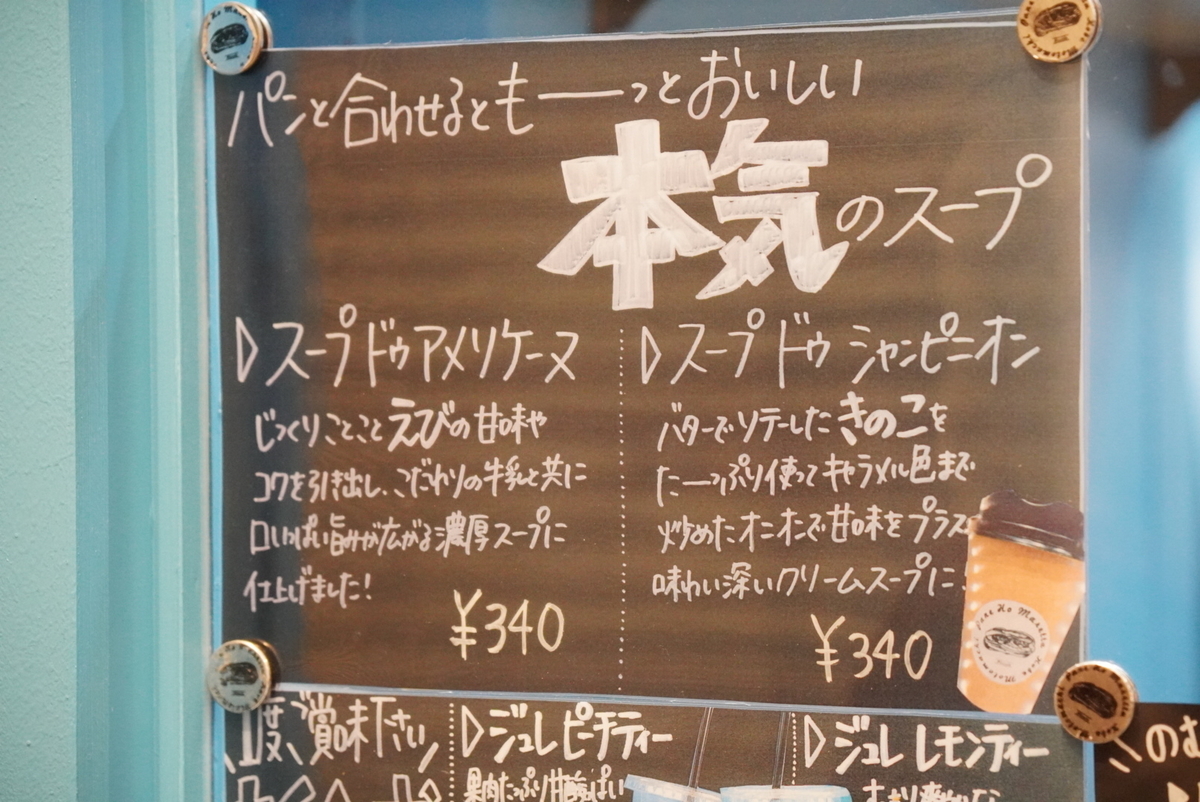 パンと合わせるとも――っとおいしい
本気のスープ
▷スープ ドゥ アメリケーヌ
じっくりことこと えびの甘味や
コクを引き出し、こだわりの牛乳と共に
口いっぱい旨みが広がる濃厚スープに
仕上げました!
¥340
▷スープ ドゥ シャンピニオン
バターでソテーした きのこを
た――っぷり使ってキャラメル色まで
炒めたオニオンで甘味をプラス
味わい深いクリームスープに
¥340
1度、ご賞味下さい
▷ジュレ ピーチティー
果肉たっぷり甘酸っぱい
▷ジュレ レモンティー
のむ